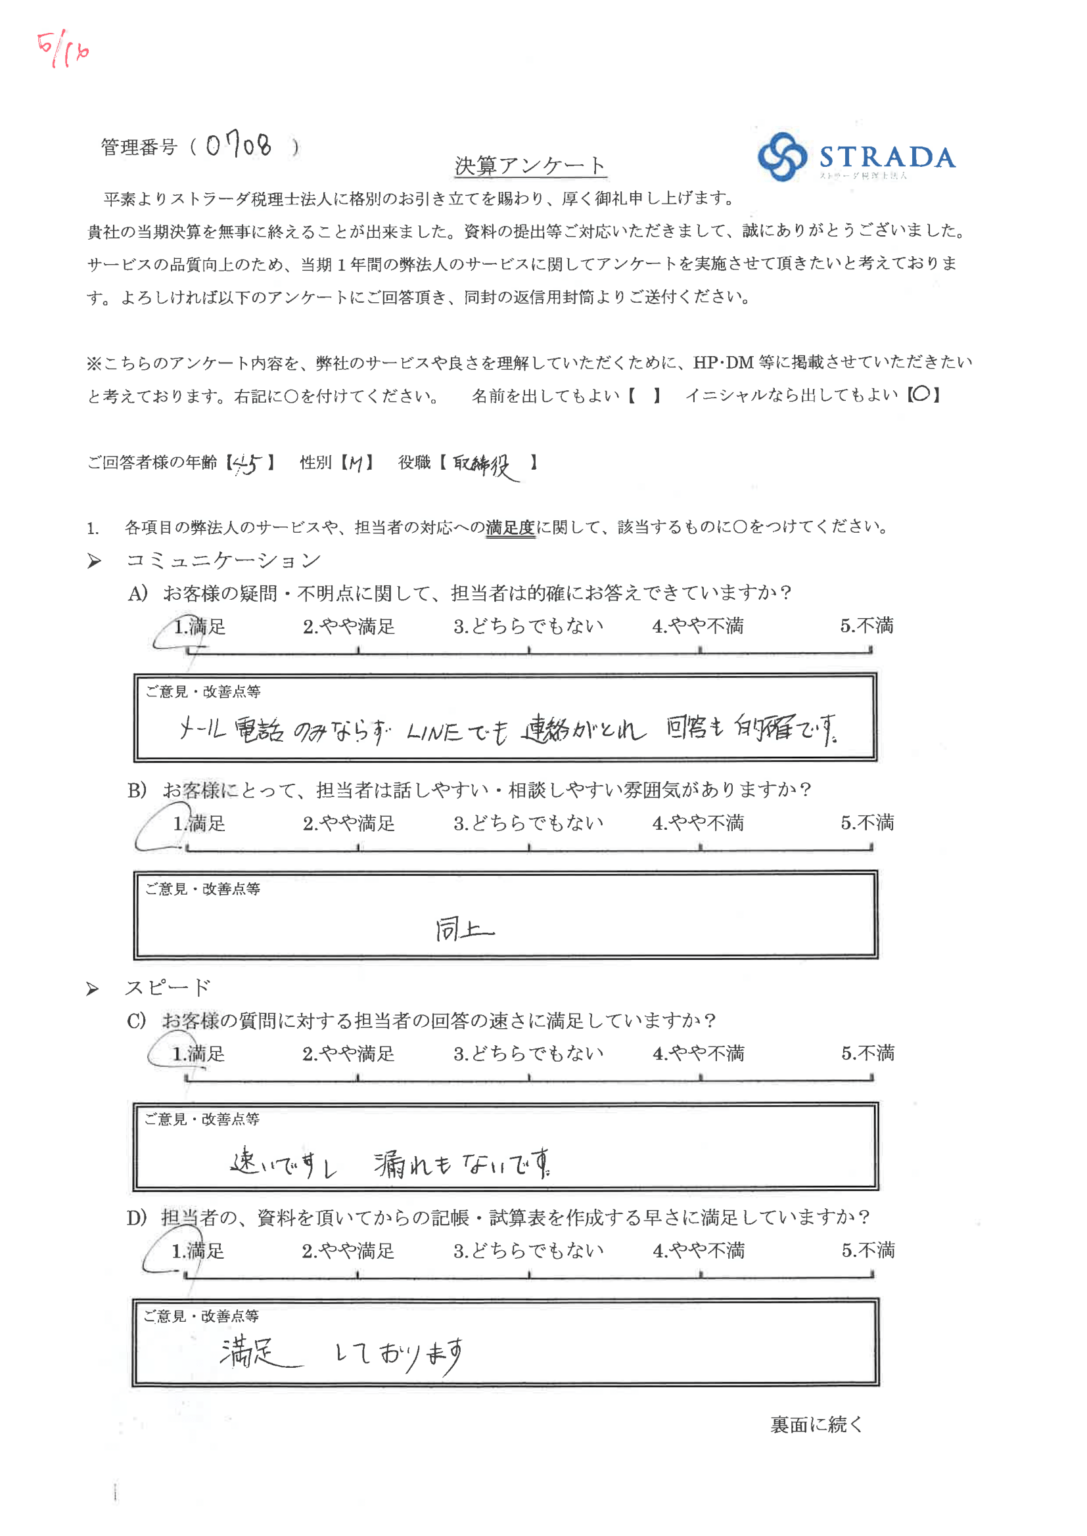 5/16
管理番号（ 0708 ）
決算アンケート
STRADA
ストラーダ税理士法人
平素よりストラーダ税理士法人に格別のお引き立てを賜わり、厚く御礼申し上げます。
貴社の当期決算を無事に終えることが出来ました。資料の提出等ご対応いただきまして、誠にありがとうございました。
サービスの品質向上のため、当期１年間の弊法人のサービスに関してアンケートを実施させて頂きたいと考えておりま
す。よろしければ以下のアンケートにご回答頂き、同封の返信用封筒よりご送付ください。
※こちらのアンケート内容を、弊社のサービスや良さを理解していただくために、HP・DM 等に掲載させていただきたい
と考えております。右記に〇を付けてください。 名前を出してもよい【 】 イニシャルなら出してもよい【〇】
ご回答者様の年齢【45】 性別【M】 役職【 取締役 】
1. 各項目の弊法人のサービスや、担当者の対応への満足度に関して、該当するものに〇をつけてください。
➢ コミュニケーション
A) お客様の疑問・不明点に関して、担当者は的確にお答えできていますか？
1.満足 2.やや満足 3.どちらでもない 4.やや不満 5.不満
ご意見・改善点等
メール 電話 のみならず LINEでも 連絡がとれ 回答も 的確です。
B) お客様にとって、担当者は話しやすい・相談しやすい雰囲気がありますか？
1.満足 2.やや満足 3.どちらでもない 4.やや不満 5.不満
ご意見・改善点等
同上
➢ スピード
C) お客様の質問に対する担当者の回答の速さに満足していますか？
1.満足 2.やや満足 3.どちらでもない 4.やや不満 5.不満
ご意見・改善点等
速いですし 漏れもないです。
D) 担当者の、資料を頂いてからの記帳・試算表を作成する早さに満足していますか？
1.満足 2.やや満足 3.どちらでもない 4.やや不満 5.不満
ご意見・改善点等
満足 しております
裏面に続く